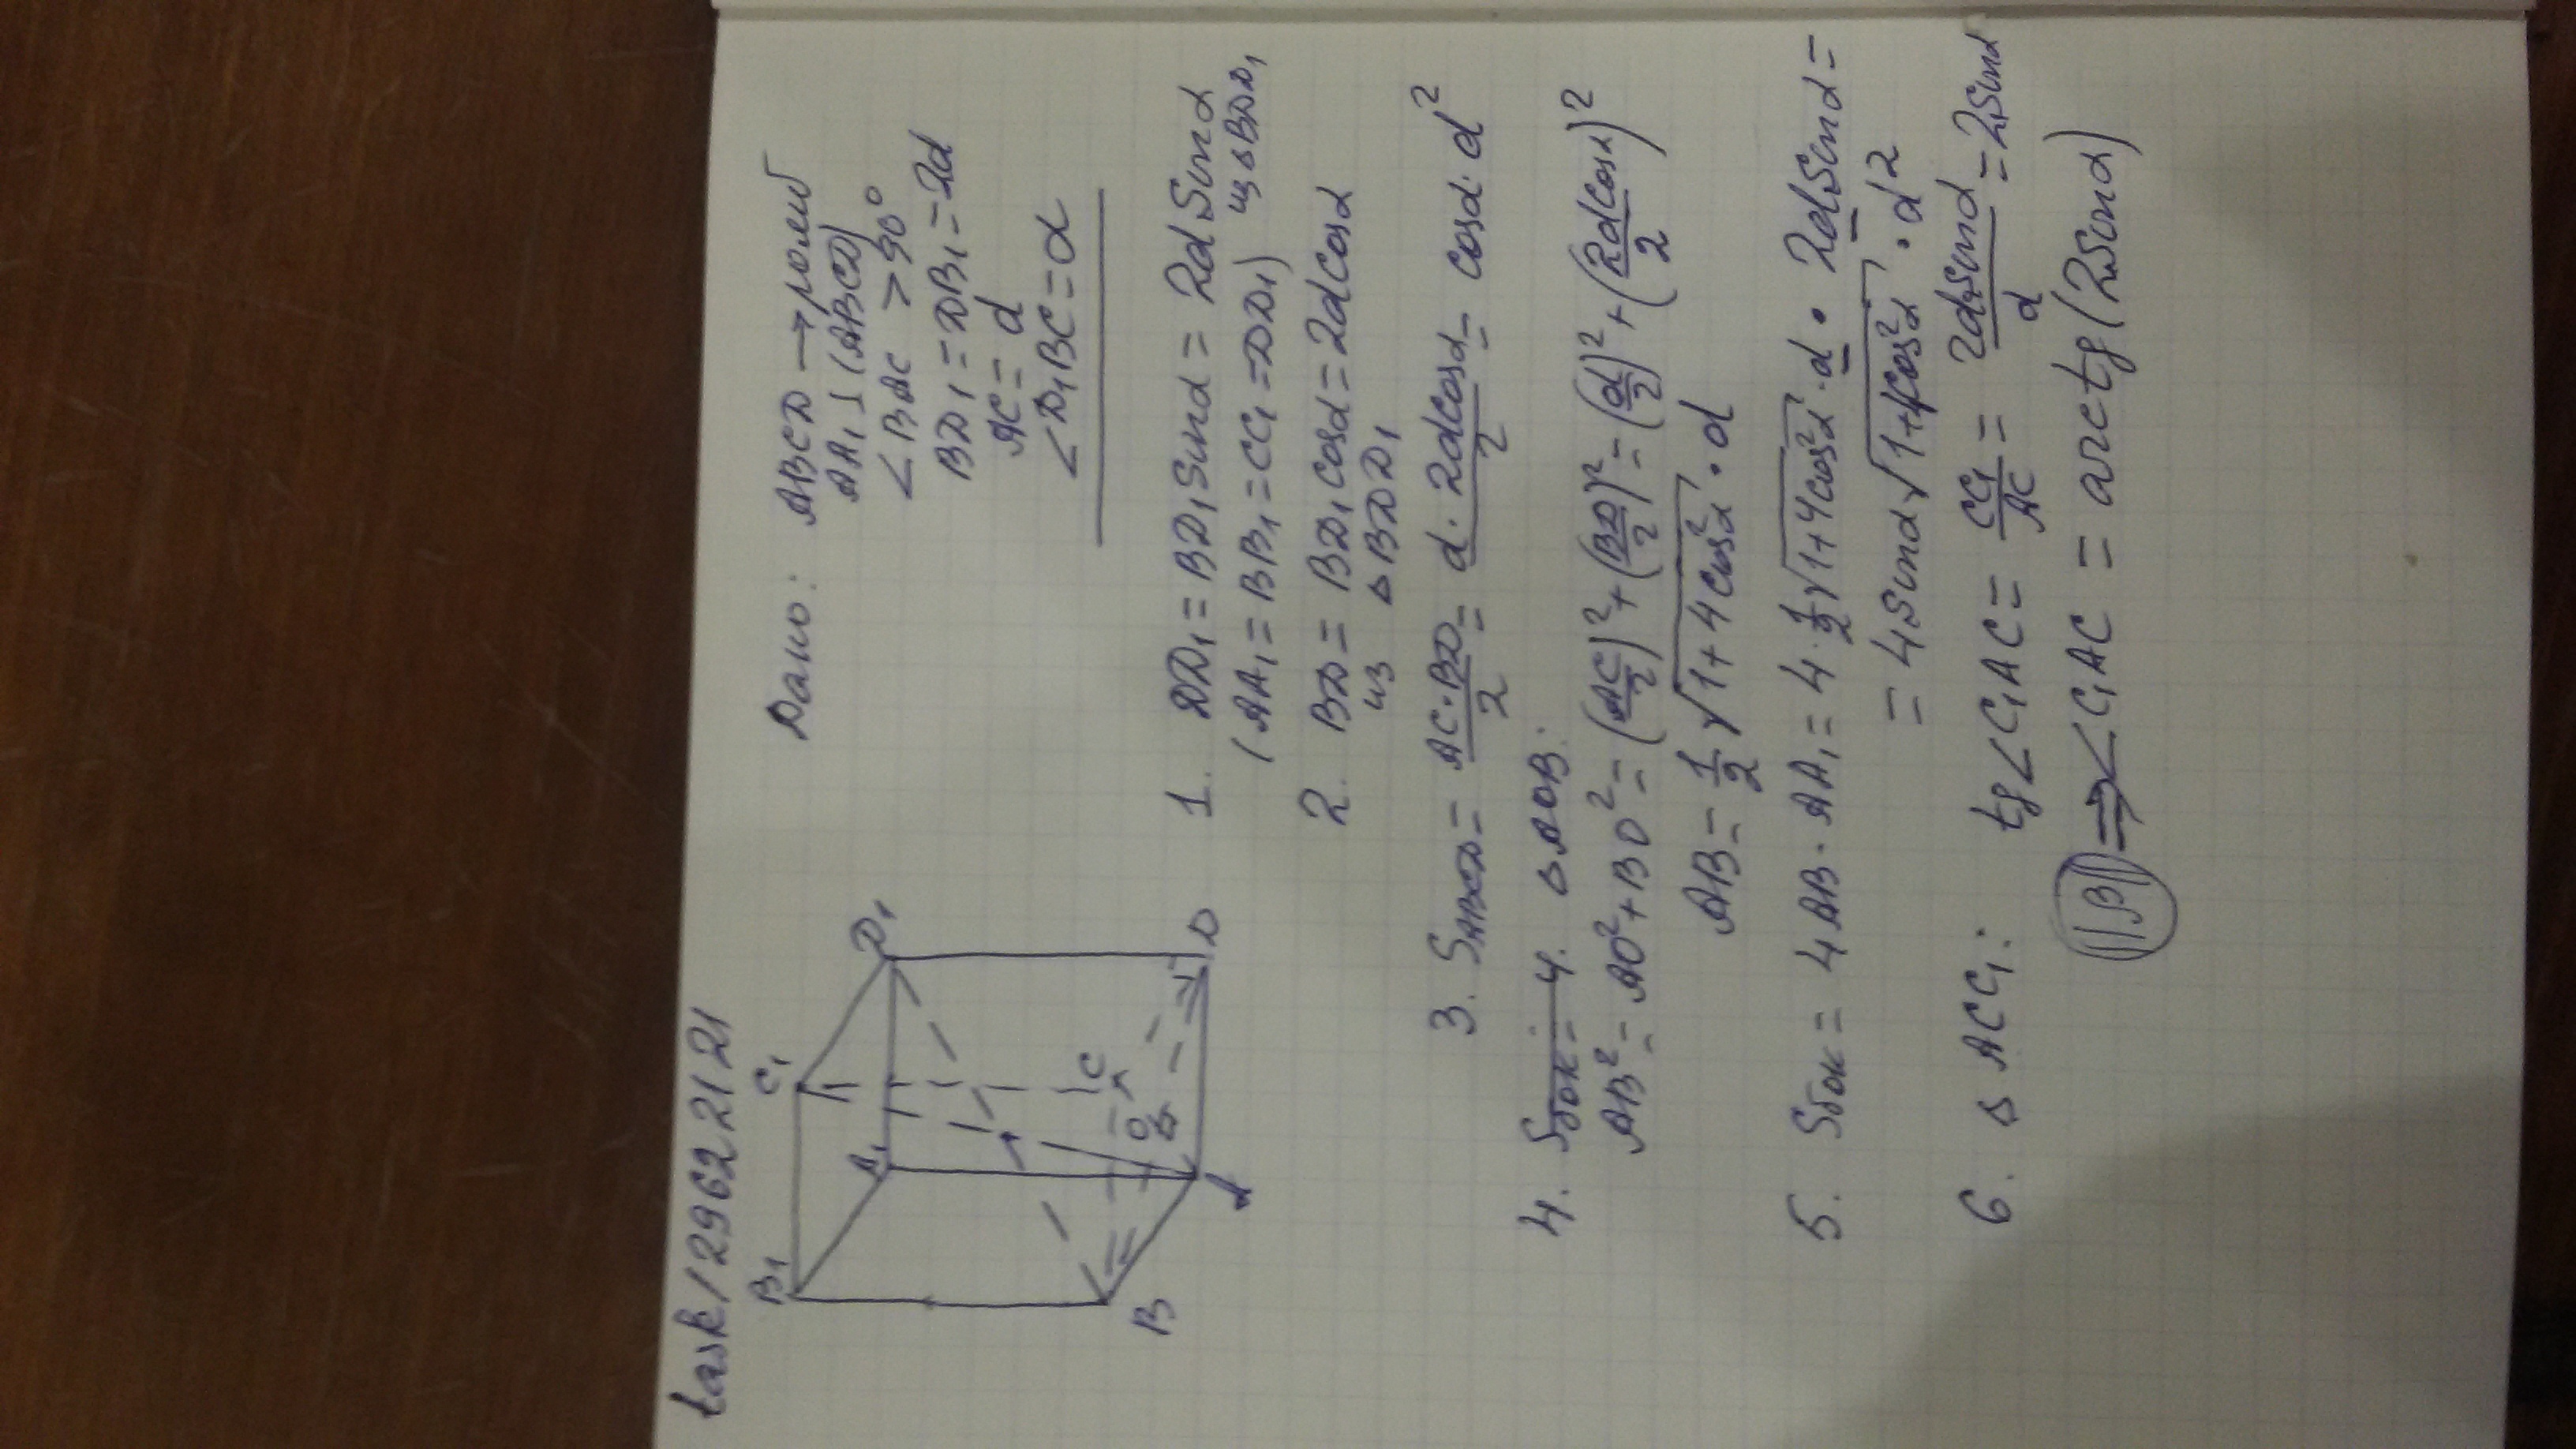 task/29622121
B₁ C₁ A₁ D₁
B A O C D
Дано: ABCD → ромб
AA₁ ⊥ (ABCD)
<BAC > 90°
BD₁ = DB₁ = 2d
AC = d
<D₁BC = α
1. DD₁ = BD₁ Sinα = 2d Sinα
(AA₁ = BB₁ = CC₁ = DD₁) из ΔBDD₁
2. BD = BD₁ cosα = 2d cosα
из ΔBDD₁
3. SABCD = AC·BD/2 = d·2dcosα/2 = cosα·d²
4. Sбок = 4. ΔAOB:
AB² = AO² + BO² = (AC/2)² + (BD/2)² = (d/2)² + (2dcosα/2)²
AB = 1/2 √(1+4cos²α) · d
5. Sбок = 4AB · AA₁ = 4 · 1/2 √(1+4cos²α) · d · 2dSinα =
= 4Sinα √(1+4cos²α) · d²
6. ΔACC₁: tg<C₁AC = CC₁/AC = 2dSinα/d = 2Sinα
⇒ <C₁AC = arctg(2Sinα)